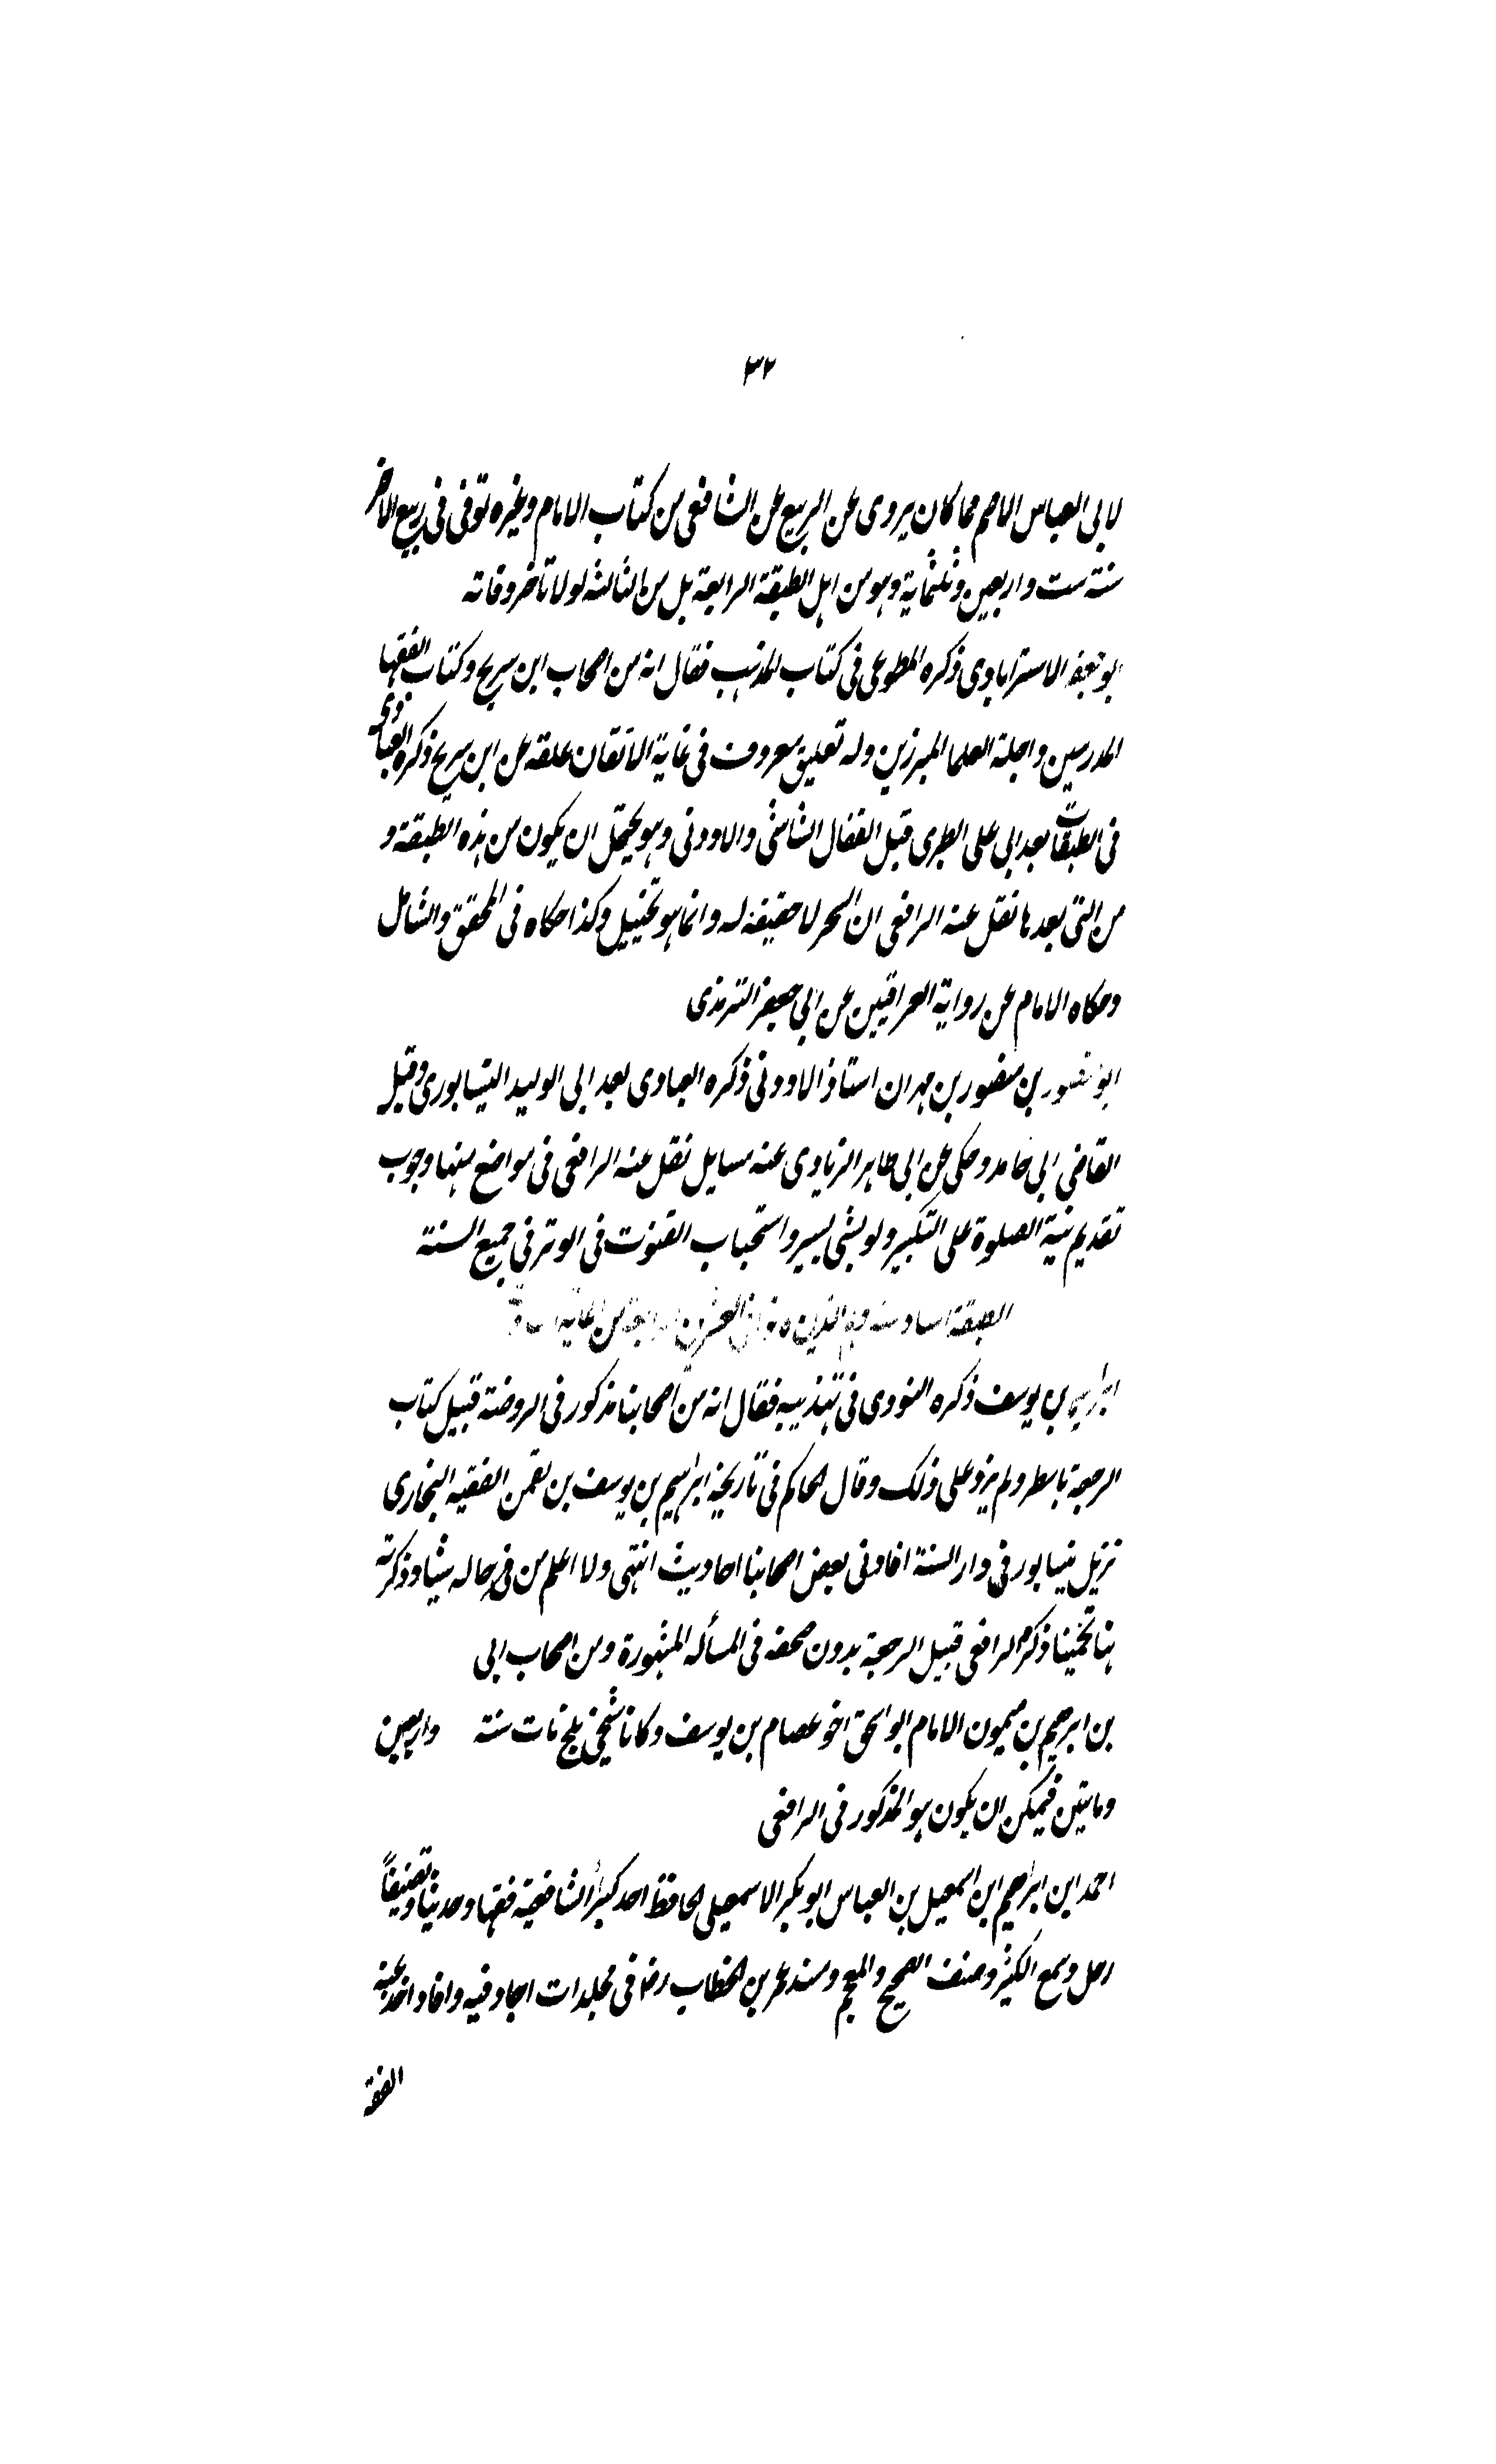 ٣٢
لابى العباس الاصم مما كان يروى عن الربيع عن الشافعى من كتاب الامام وغيره توفى فى ربيع الاخر
سنة ست واربعين وثلثماية وهو من اهل الطبقة الرابعة بل من الثالثة لولا تاخر وفاته
ابو جعفر الاستراباوى ذكره المطوعى فى كتاب المذهب فقال انه من اصحاب ابن سريج وكتاب الفقها
المدرسين واجلة العلما المبرزين وله تعليق معروف فى غاية الاتقان علقه عن ابن سريج ذكره العباوى
فى الطبقات بعد ابى على الطبرى قبل القفال الشاشى والاودنى وهو يحتمل ان يكون من هذه الطبقة و
من التى بعدها نقل عنه الرافعى ان السحر لا حقيقة له وانما هو تخييل وكذا حكاه فى المحقق والشامل
وحكاه الامام عن رواية العراقيين عن ابى جعفر الترمذى
ابو منصور بن منصور بن مهران استاذ الاودنى ذكره العبادى بعد ابى الوليد النيسابورى وقبل
القاضى ابى حامد وحكى عن ابى طاهر الزيادى عنه مسايل نقل عنه الرافعى فى مواضع منها وجوب
تقديم نية الصلوة على التكبير ولو بشى يسير واستحباب القنوت فى الوتر فى جميع السنة
الطبقة السادسة وهم الذين فى العشرين من الماية
ابراهيم بن يوسف ذكره النووى فى تهذيبه فقال انه من اصحابنا مذكور فى الروضة قبيل كتاب
الرجعة باسطر ولم يزد على ذلك وقال الحاكم فى تاريخه ابراهيم بن يوسف بن لقمن الفقيه البخارى
نزيل نيسابور فى دار السنة افادنى بعض اصحابنا احاديث انتهى ولا اعلم من فى حاله شيئا وذكرته
هنا تخمينا ذكره الرافعى قبيل الرجعة بدون صحفه فى المسألة المشهورة ومن اصحاب ابى
بن ابرهيم بن ميمون الامام ابو اسحق اخو عصام بن يوسف وكانا شيخى بلخ مات سنة واربعين
ومايتين فيمكن ان يكون هو المذكور فى الرافعى
احمد ابن ابراهيم ابن اسمعيل بن العباس ابو بكر الاسمعيلى الحافظ احد كبرأ الشافعية فقها وحديثا وتصنيفاً
رحل وسمع الكثير وصنف الصحيح والمعجم ومسند عمر بن الخطاب رضا فى مجلدات اجاد فيه وافاد اخذ عنه
الفقه